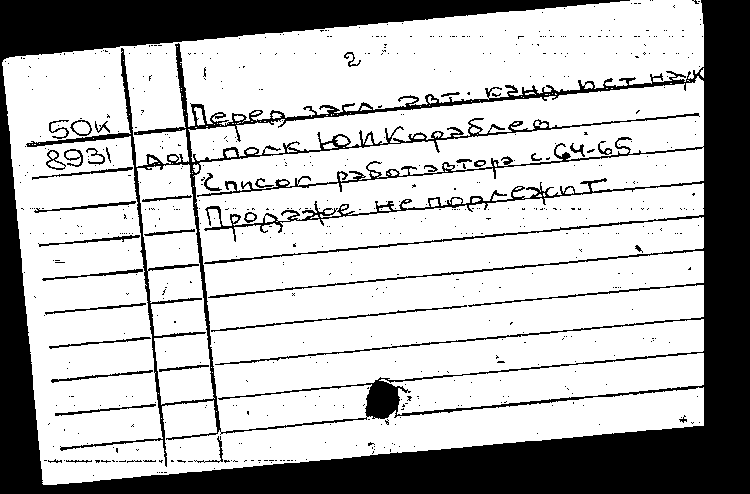 2
50к Перед загл. авт.: канд. ист наук
8931 доц. полк. Ю.И.Кораблев.
Список работ автора с.64-65.
Продаже не подлежит